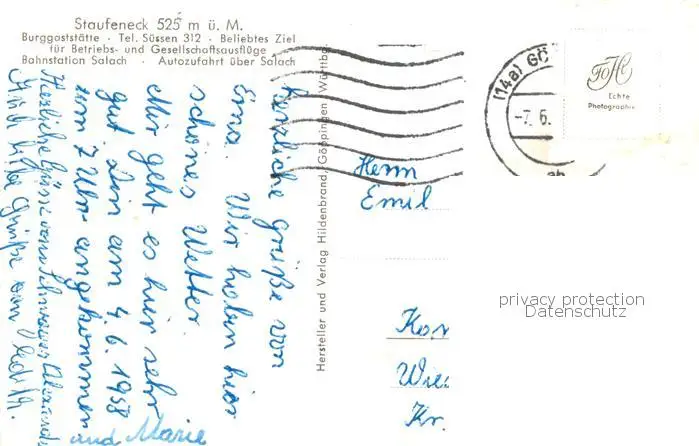 Staufeneck 525 m ü. M.
Burggaststätte · Tel. Süssen 312 · Beliebtes Ziel
für Betriebs- und Gesellschaftsausflüge
Bahnstation Salach · Autozufahrt über Salach
Herzliche Grüße von
Erna. Wir haben hier
schönes Wetter.
Mir geht es hier sehr
gut. Bin am 4.6.1958
um 7 Uhr angekommen
Herzliche Grüsse vom Schwager
und Marie
Grüße von
Hersteller und Verlag Hildenbrand, Göppingen (Württbg.
(14a) GÖ
-7.6.
Echte
Photographie
Herrn
Emil
Kor
Wie
Kr.
privacy protection
Datenschutz